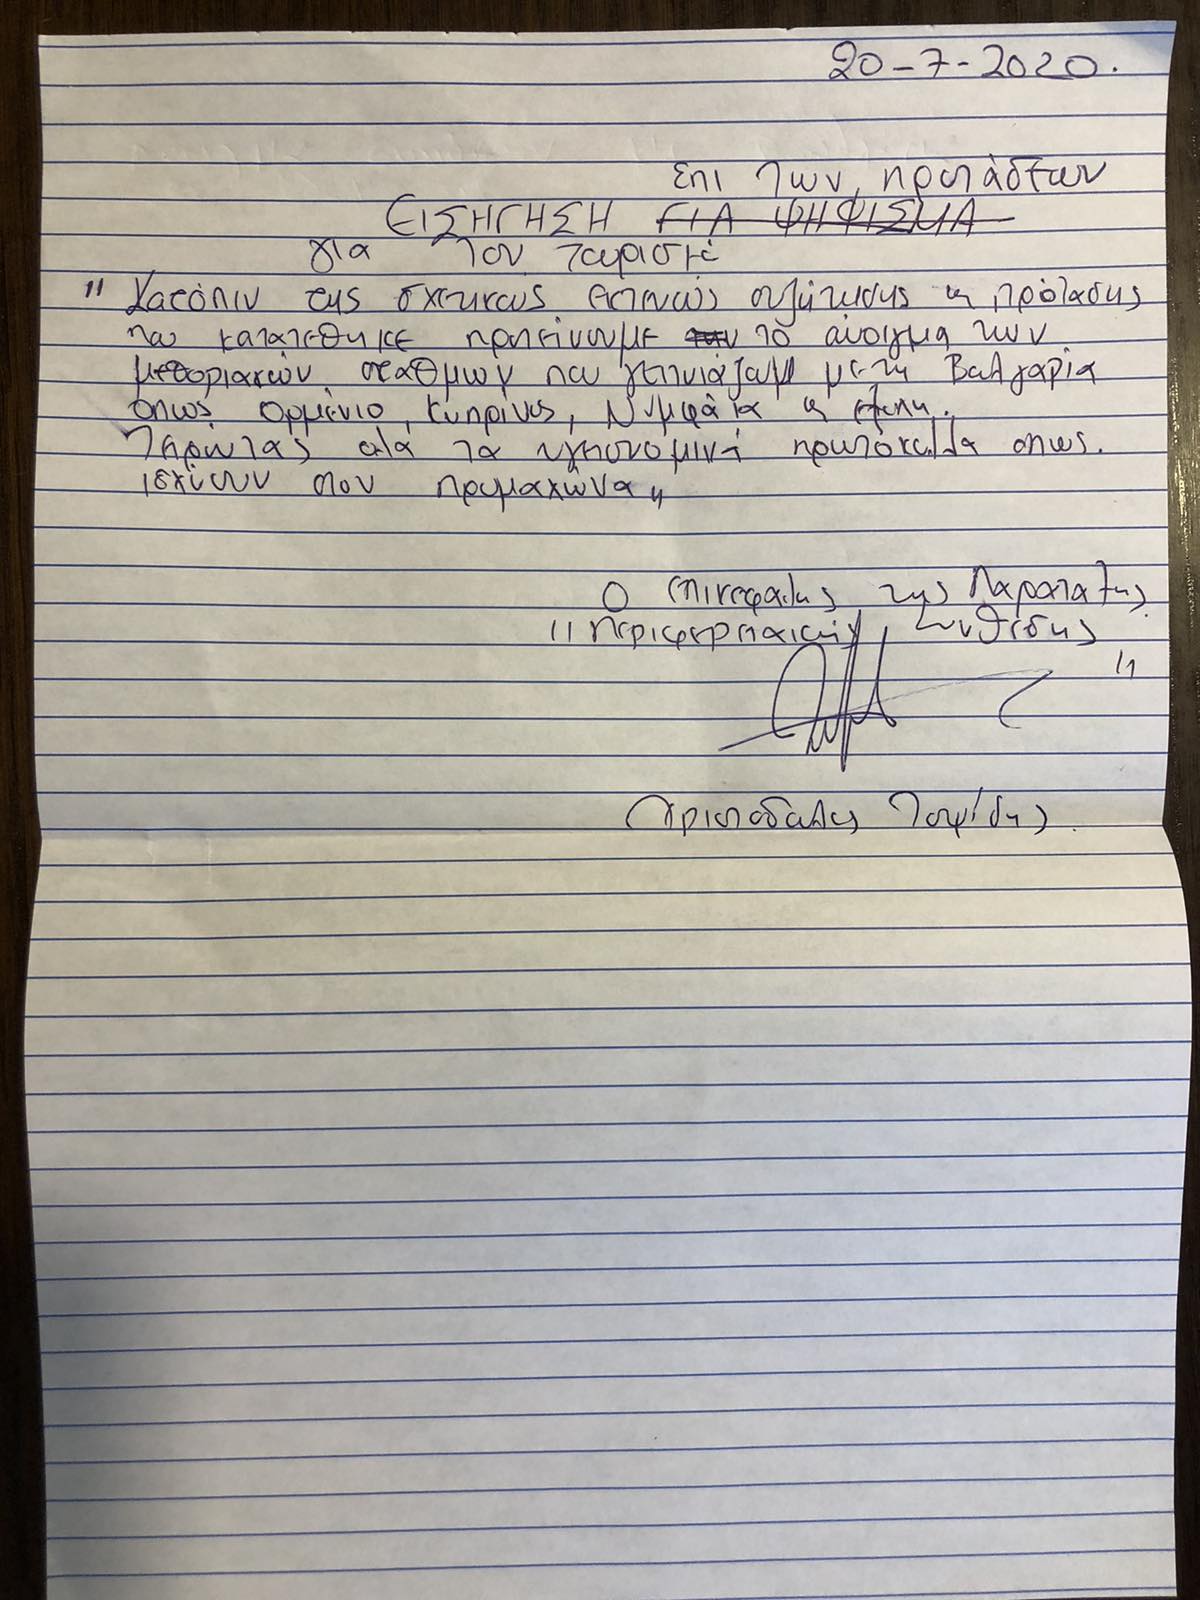 20-7-2020.
Επι των προτάσεων
ΕΙΣΗΓΗΣΗ ΓΙΑ ΨΗΦΙΣΜΑ
για τον τουρισμό
"Κατόπιν της σχετικώς εκτενούς συζήτησης & πρότασης
που κατατέθηκε προτείνουμε το άνοιγμα των
μεθοριακών σταθμών που γειτνιάζουν με τη Βαλγαρία
όπως Ορμένιο, Κυπρίνος, Νυμφαία &
Τηρώντας όλα τα υγειονομικά πρωτόκολλα όπως.
ισχύουν στον προμαχώνα"
Ο επικεφαλής της Παράταξης
"Περιφερειακή Σύνθεσης
"
Χριστόδουλος Τοψίδης